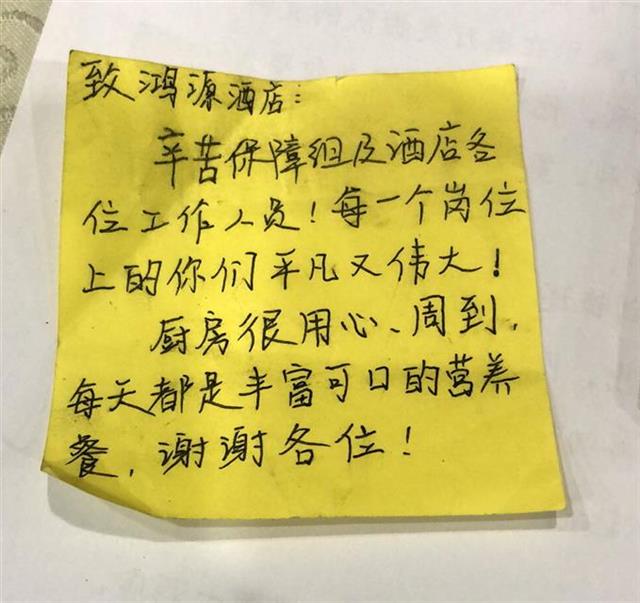 致鸿源酒店:
辛苦保障组及酒店各
位工作人员!每一个岗位
上的你们平凡又伟大!
厨房很用心、周到,
每天都是丰富可口的营养
餐,谢谢各位!